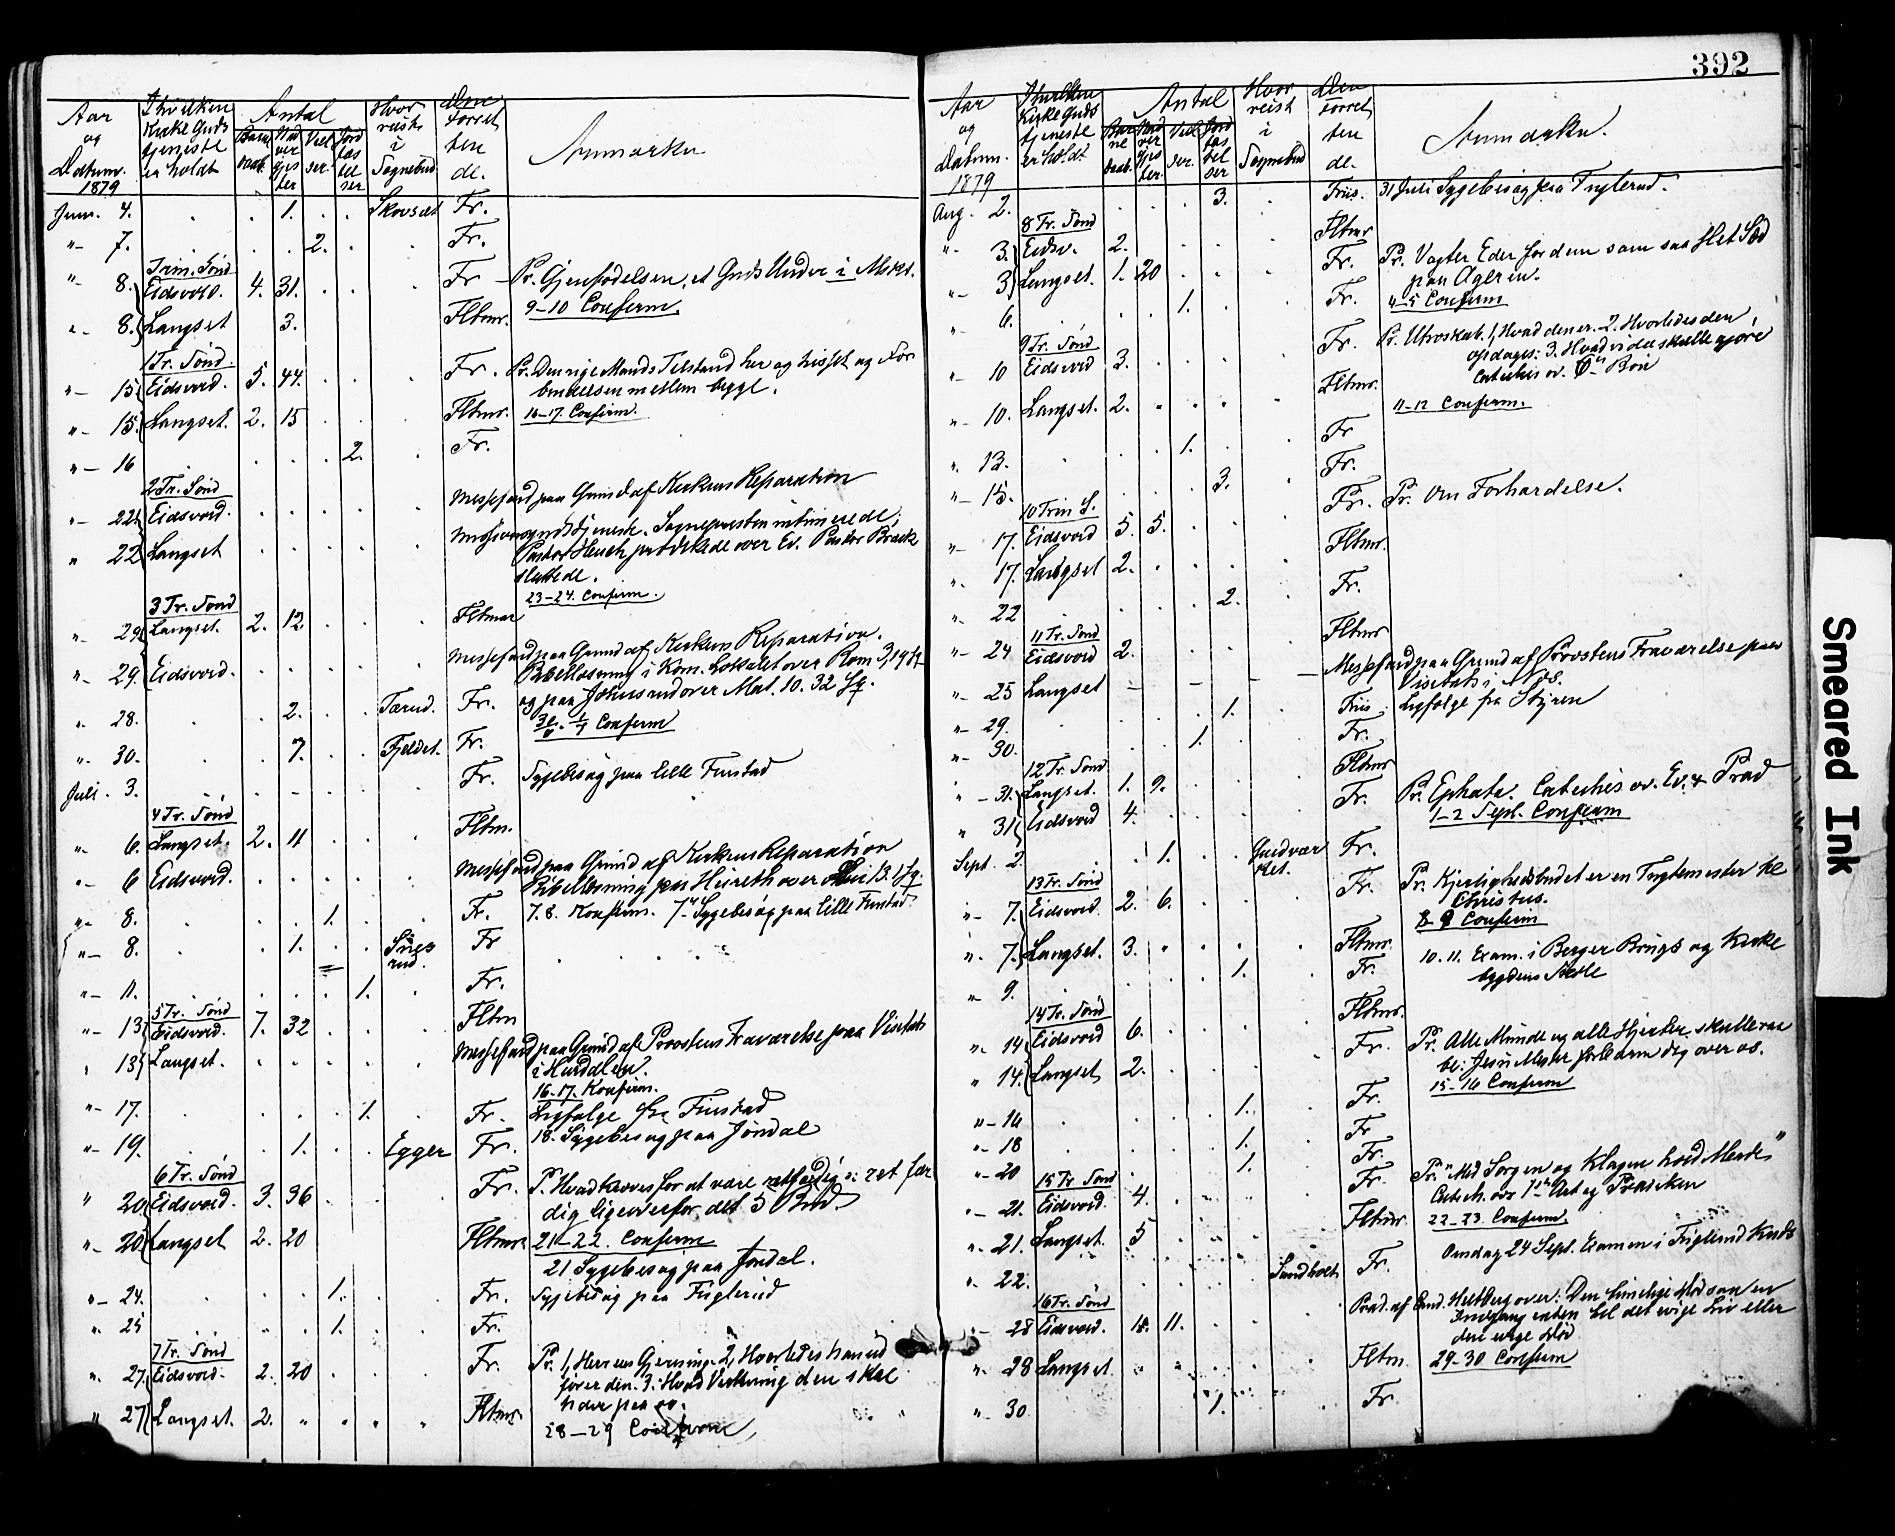 392
Aar og Datum. 1879 | I hvilken Kirke Gudstjeneste er holdt | Antal Barnedaab. Nadvergjester Vielser. Jordfæstelser | Hvor reist i Sognebud | Den Forrettende. | Anmærkn
Juni 4. . . 1. . . Skovsæt Fr.
"- 7. . . . 2. . . Fr.
Trin. Sønd
"- 8. Eidsvold. 4. 31. . . . Fr - Pr. Gjenfødelsen, et Guds Under i Mskt.
9-10 Conferm.
"- 8. Langset 3. Fltmr.
1 Tr. Sønd.
"- 15. Eidsvold. 5. 44. . . . Fr. Pr. Den rige Mands Tilstand her og hisset og For
bindelsen mellem begge.
"- 15. Langset. 2. 15 . . . Fltmr. 16-17. Confirm.
"- 16 . . . . 2. . Fr.
2 Tr. Sønd
"- 22. Eidsvold. . . . . . Messefald paa Grund af Kirkens Reparation
" 22 Langset . . . . . Missionsgudstjeneste. Sognepresten intimerede;
Pastor Heuch prædikede over Ev. Pastor Brack
sluttede.
23-24. Confirm.
3 Tr. Sønd
"- 29. Langset. 2. 12. . . . Fltmar
"- 29. Eidsvold. . . . . . Messefald paa Grund af Kirkens Reparation.
Bibellæsning i Kom. Lokalet over Rom 3, 19 ff
og paa Johnsrud over Mat. 10. 32 fg.
"- 28. . . 2. . . Tærud. Fr.
30/6. 1/7 Conferm
"- 30. . . 7. . . Fjeldet. Fr.
Juli. 3. . . - . . Fr. Sygebesøg paa Lille Finstad
4 Tr. Sønd
"- 6. Langset. 2. 11 . . . Fltm.
"- 6 Eidsvold. . . . . . Messefald paa Grund af Kirkens Reparation
Bibellæsning paa Hureth over 13. 1 fg.
"- 8. . . . 1. . . Fr. 7. 8. Konfirm. Sygebesøg paa Lille Finstad
"- 8. . . 1. . . rud. Fr
"- 11. . . . . 1. . Fr.
5 Tr. Sønd
"- 13 Eidsvold. 7. 32 . . . Fltm
" 13 Langset. . . . . . Messefald paa Grund af Provstens Fraværelse paa Visitats
i Hurdalen.
16-17. Konfirm.
"- 17. . . . . 1. . Fr. Ligfølge fra Finstad
18. Sygebesøg paa Jøndal
"- 19. . . 1. . . Egger Fr.
6 Tr. Sønd
" 20 Eidsvold. 3. 36 . . . Fr. P. Hvad kræves for at være retfærdig ɔ: ret fær
dig ligeoverfor det 5 Bud.
"- 20 Langset 2. 20 Fltmr. 21-22. Conferm
21 Sygebesøg paa Jøndal.
"- 24. . . . 1. . . Fr. Sygebesøg paa Fuglerud
". 25 . . . 1. . . Fr.
7 Tr. Sønd
". 27. Eidsvold. 2. 20 . . . Fr. Pr. 1, Herrens Gjerning. 2, Hvorledes han ud
fører den. 3. Hvad Virkning den skal
have paa os.
" 27 Langset. 2. " " " " Fltmr. 28-29 Conferm
Aar og Datum. 1879 | I hvilken Kirke Gudstjeneste er holdt | Antal Barnedaab. Nadvergjester. Vielser. Jordfæstelser | Hvor reist i Sognebud | Den Forrettende. | Anmærkn.
Aug. 2. . . . 3. . Friis. 31 Juli Sygebesøg paa Fuglerud.
8 Tr. Sønd
"- 3. Eidsv. 2. . . . . Fltmr
"- 3 Langset 1. 20 . . . Fr. Pr. Vogter Eder for dem som saa slet Sæd
paa Ageren.
"- 6. . . 1. . . Fr. 4-5 Conferm
9 Tr. Sønd
"- 10 Eidsvold 3. . . . . Fr. Pr. Utroskab. 1, Hvad den er. 2. Hvorledes den
opdages: 3. Hvad vi da skulle gjøre
Catechis ov. Bøn
"- 10. Langset. 2. . . . . Fltmr. 11-12 Conferm.
". 13. . . 1. . . Fr
"- 15. . . . 3. . Fr.
10 Trin S.
"- 17. Eidsvold 5. 5. . . . Fr. Pr. Om Forhærdelse.
". 17. Langset 2. . . . . Fltmr.
". 22 . . . 2. . Fr.
11 Tr. Sønd
"- 24 Eidsvold 2. . . . Fltmr
"- 25 Langset - - - - - Messefald paa Grund af Provstens Fraværelse paa
Visitats i
"- 29. . . . 1. . Friis Ligfølge fra Styren
"- 30. . . 1. . . Fr.
12 Tr. Sønd
" - 31. Langset. 1. 9. . . . Fltmr
" 31 Eidsvold 4. . . . . Fr. Pr. Ephata. Catechis ov. Ev. & Præd
1-2 Sept. Conferm
Sept. 2. . 1. . . Fr.
13 Tr. Sønd
"- 7. Eidsvold. 2. 6. . . . Fr. Pr. Kjerlighedsbudet er en Tugtemester til
Christus.
8-9 Conferm
". 7. Langset. 3. . . . . Fltmr. 10. 11. Exam. i Berger Brugs og Kirke
bygdens Skole
" 9. . . . 1. . Fr.
14 Tr. Sønd
". 14 Eidsvold 6. . . . . Fltmr.
" 14. Langset 2. . . . . Fr. Pr. Alle Munde og alle Hjerter skulle raa
be: Jesu Mester forbarm dig over os.
15-16 Conferm
"-16 . . . 1. . Fr.
"- 18 . . . 1. . Fr
"-20 . . . 1. . Fr.
15 Tr Sønd
"- 21. Eidsvold. 4. . . . . Fr. Pr. "Med Sorgen og Klagen hold Maade"
Catech. ovr 1ste Art og Prædiken
"- 21. Langset. 5 . . . . Fltmr 22-23. Conferm.
Onsdag 24 Sept. Examen i Fuglerud Kreds
". 22. . . . . Sundholt Fr.
16 Tr. Sønd
- 28 Eidsvold. 11. . . . Præd. af over: Den timelige Død som en
Indgang enten til det evige Liv eller
den evige Død
". 28 Langset. " " . . . Fltm. 29-30 Conferm
"- 30 . . . 1. . Fr.
Smeared Ink